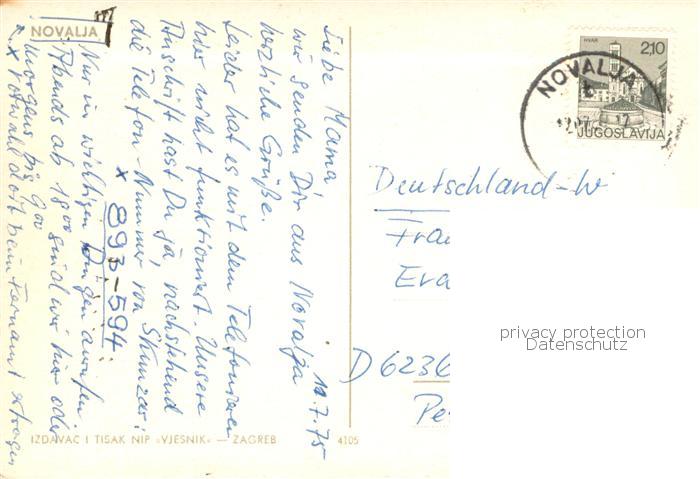 NOVALJA
11.7.75
Liebe Mama,
wir senden Dir aus Novalja
herzliche Grüße.
Leider hat es mit dem Telefonieren
hier nicht funktioniert. Unsere
Anschrift hast Du ja, nachstehend
die Telefon-Nummer von
x 893-594.
Nur in wichtigen Dingen anrufen.
Abends ab 18 00 sind wir hier oder
morgens bis 9 00
x Vorwahl dort beim Fernamt erfragen
IZDAVAČ I TISAK NIP »VJESNIK« — ZAGREB
4105
HVAR
2,10
JUGOSLAVIJA
NOVALJA
Deutschland-W
Frau
Eva
D 6236
privacy protection
Datenschutz